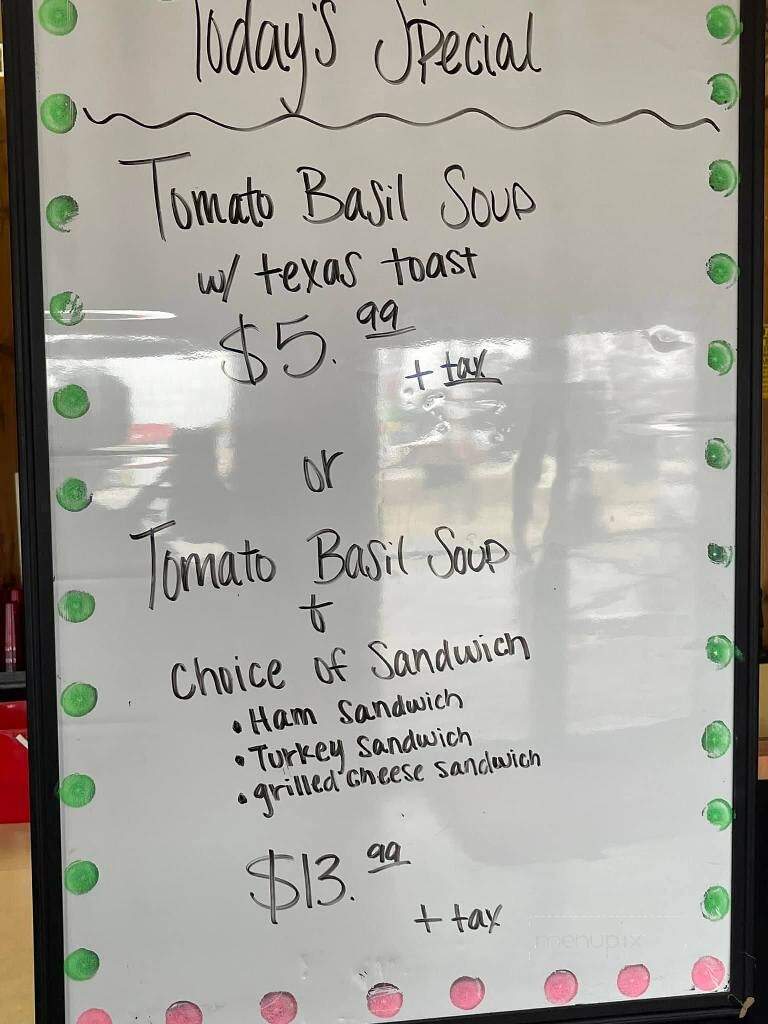 Today's Special
Tomato Basil Soup
w/ texas toast
$5.99
+ tax
or
Tomato Basil Soup
+
Choice of Sandwich
• Ham Sandwich
• Turkey Sandwich
• grilled cheese sandwich
$13.99
+ tax
menupix